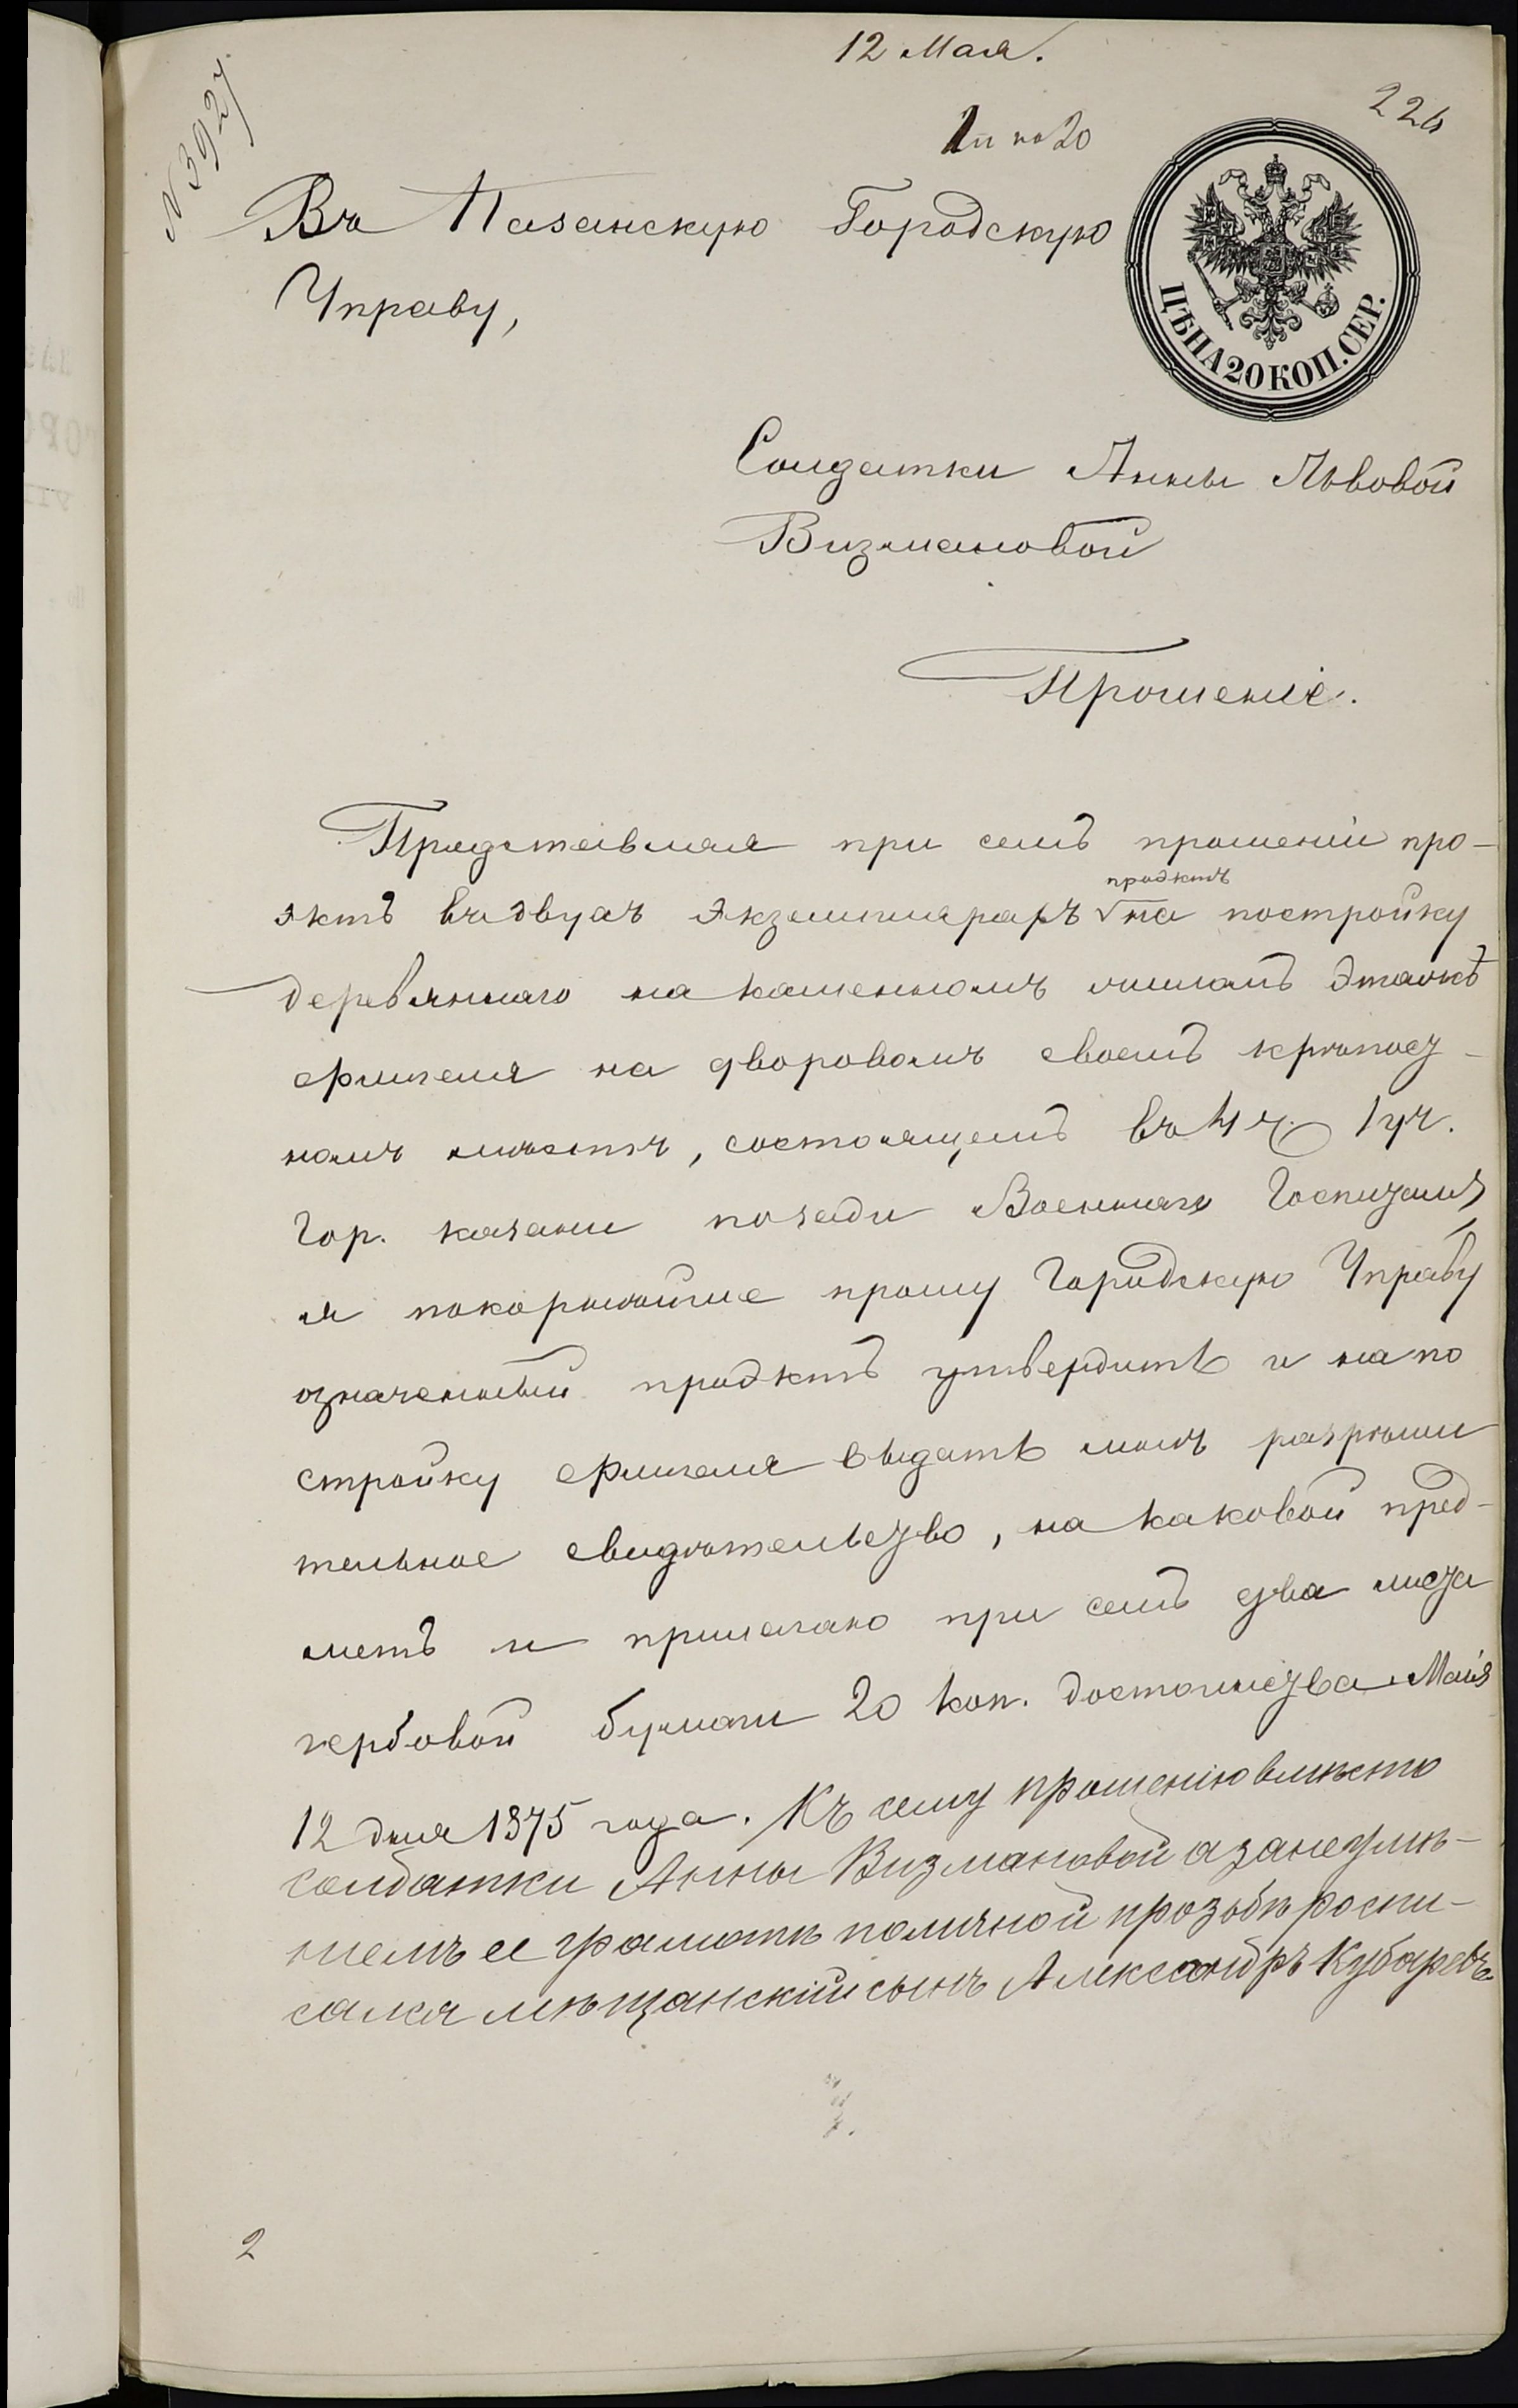 12 Мая.
226
№ 3927
2 л по 20
Въ Казанскую Городскую
Управу,
ЦѢНА 20 КОП. СЕР.
Солдатки Анны Львовой
Визмановой
Прошеніе.
Представляя при семъ прошеніи про-
проэктъ
эктъ въ двухъ экземплярахъ √на постройку
деревяннаго на каменномъ нижнемъ этажѣ
флигеля на дворовомъ своемъ крѣпост-
номъ мѣстѣ, состоящемъ въ 4 ч. 1 уч.
гор. Казани позади Военнаго Госпиталя
я покорнѣйше прошу Городскую Управу
означенный проэктъ утвердить и на по
стройку флигеля выдать мнѣ разрѣши
тельное свидѣтельство, на каковой пред-
метъ и прилагаю при семъ два листа
гербовой бумаги 20 коп. достоинства. Маія
12 дня 1875 года. Къ сему прошенію вмѣсто
солдатки Анны Визмановой а за неумѣ-
ніемъ ее грамотѣ по личной прозьбѣ роспи-
сался мѣщанскій сынъ Александръ Кубаревъ
2